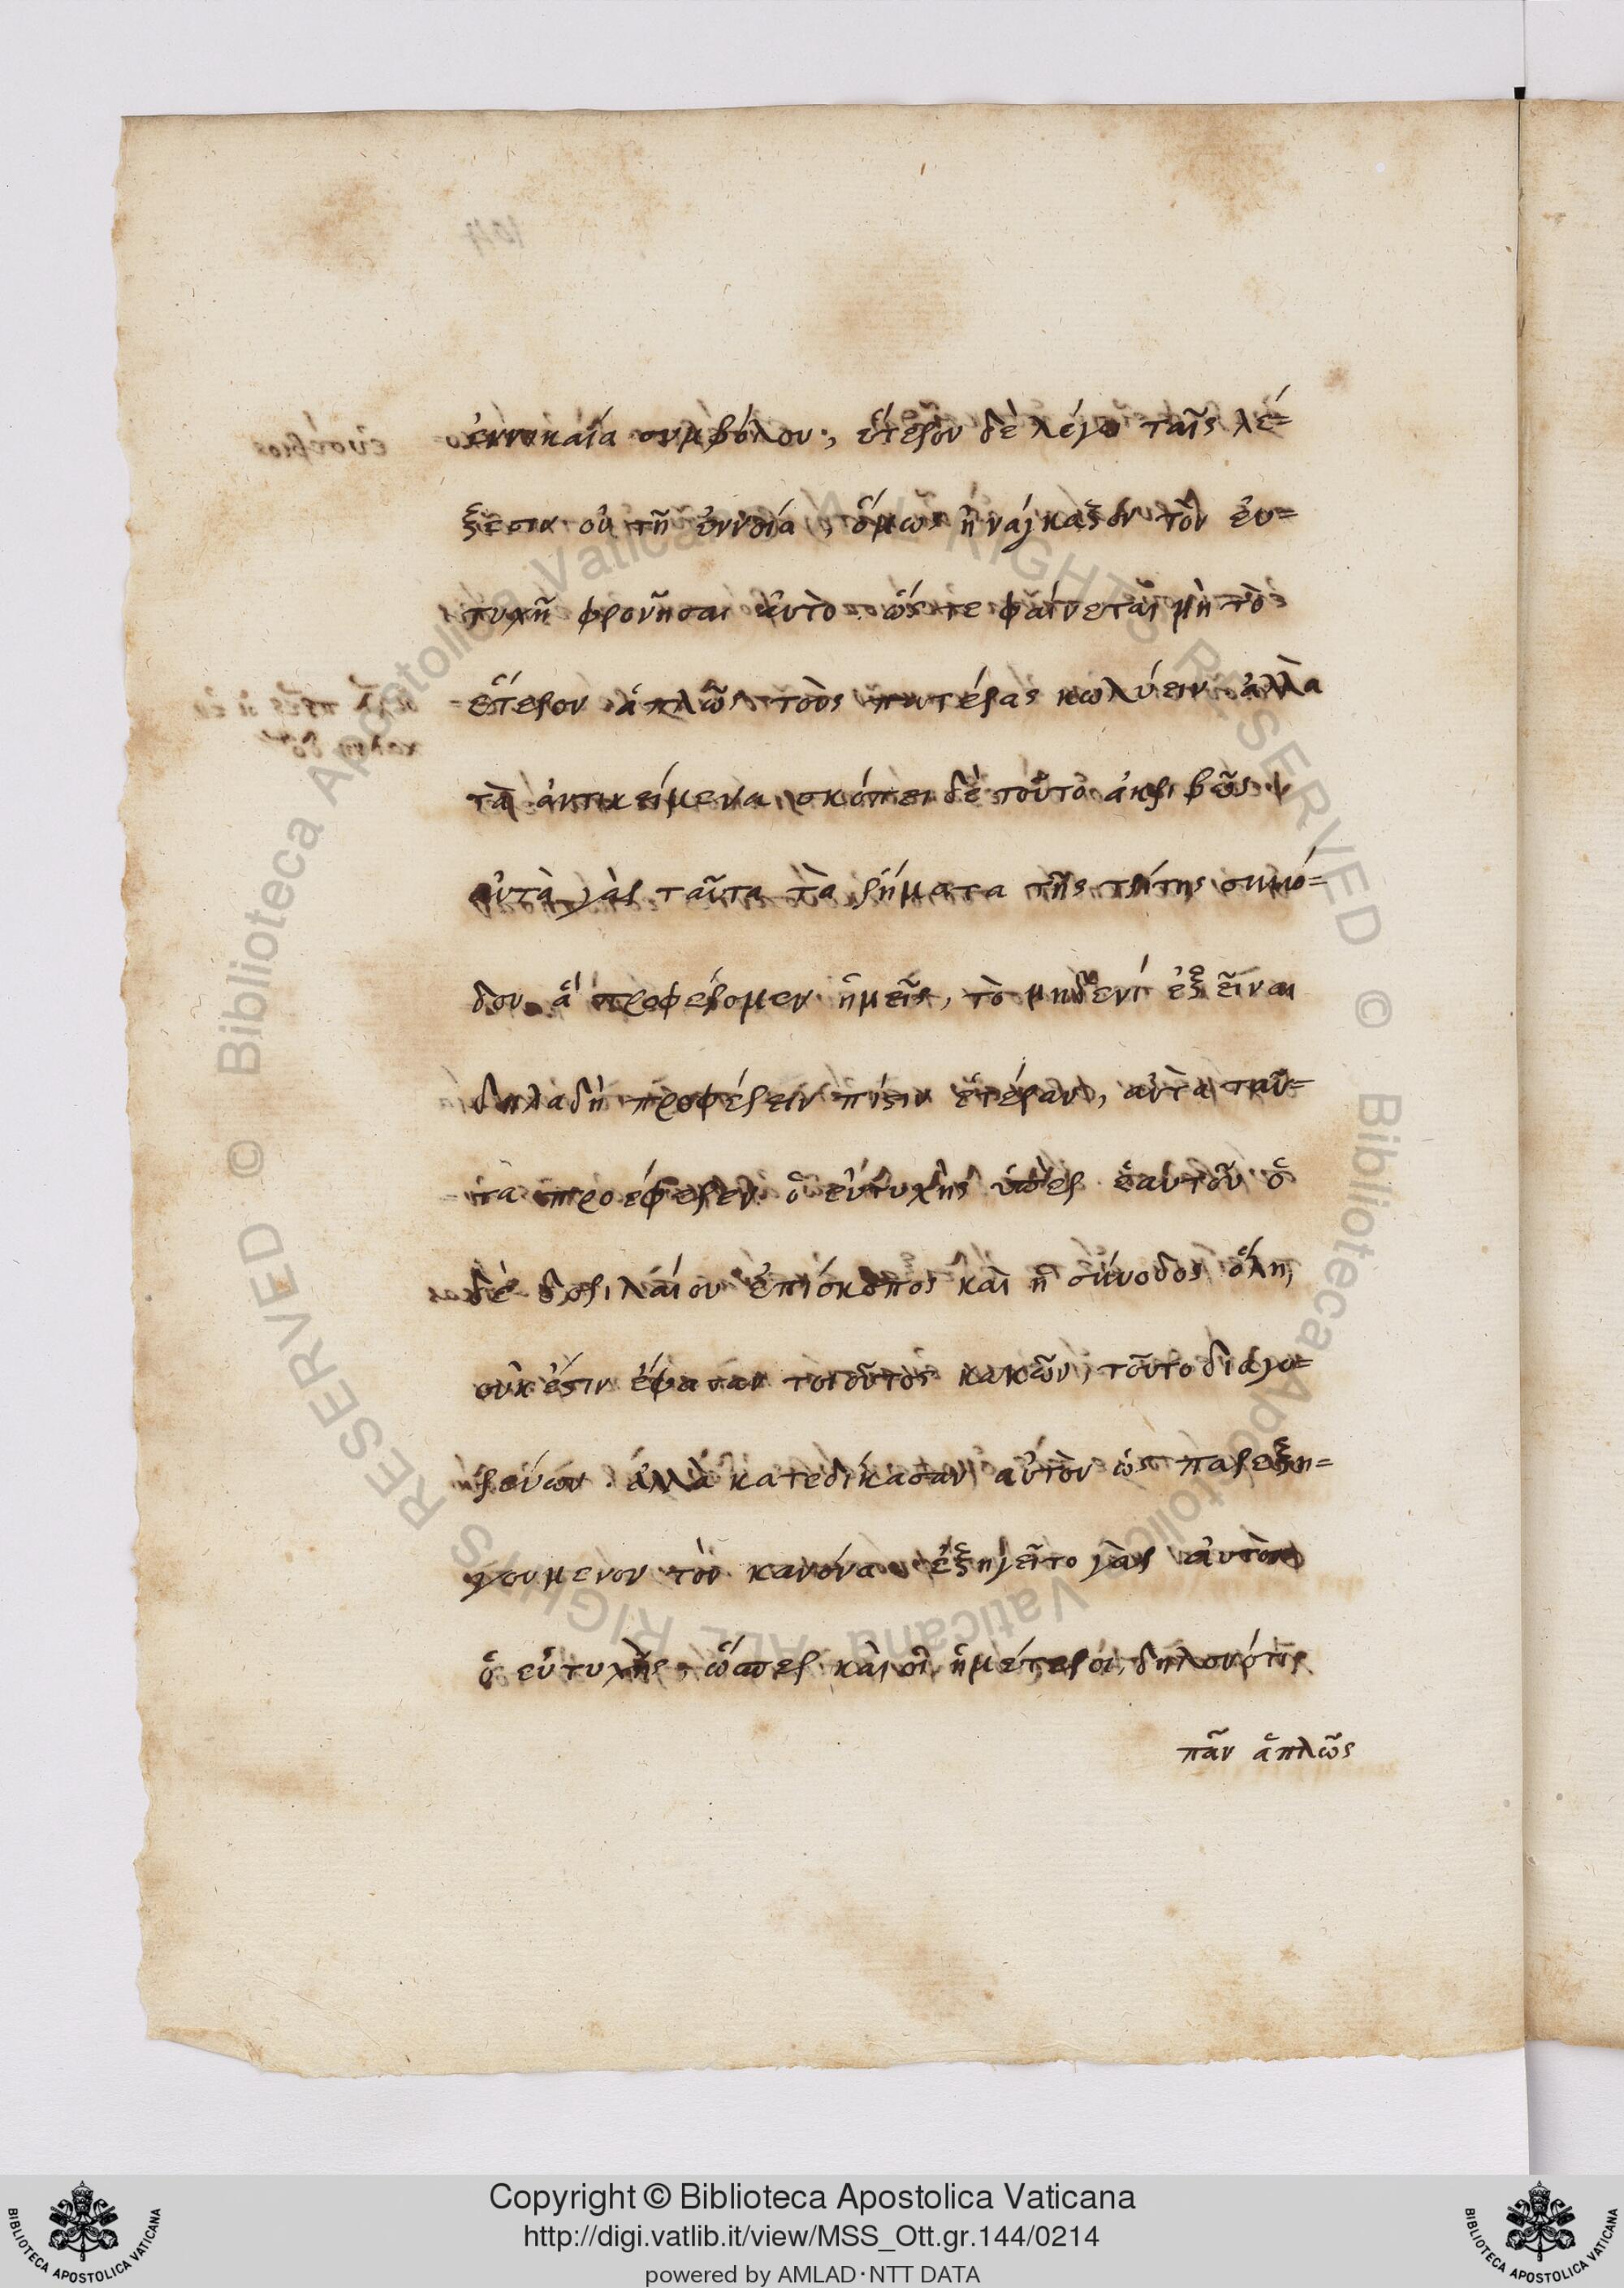 ἐν νικαία συμβόλου, ἕτερον δὲ λέγω ταῖς λέ=
ξεσιν οὐ τῆ ἐννοία, ὅμως ἠνάγκαζον τὸν εὐ=
τυχῆ φρονῆσαι αὐτὸ. ὥστε φαίνεται μὴ τὸ
ἕτερον ἁπλῶς τοὺς πατέρας κωλύειν ἀλλὰ
τὰ ἀντικείμενα, σκόπει δὲ τοῦτο ἀκριβῶς
αὐτὰ γὰρ ταῦτα τὰ ρήματα τῆς τρίτης συνό=
δου ἃ προφέρομεν ἡμεῖς, τὸ μηδενὶ ἐξεῖναι
δηλαδὴ προφέρειν πίστιν ἑτέραν, αὐτὰ ταῦ=
τα προέφερεν ὁ εὐτυχὴς ὑπὲρ ἑαυτοῦ ὁ
δὲ δοριλαίου ἐπίσκοπος καὶ ἡ σύνοδος ὅλη,
οὐκ ἔστιν ἔφασαν τοιοῦτος κανών, τοῦτο διαγο=
ρεύων. ἀλλὰ κατεδίκασαν αὐτὸν ὡς παρεξη=
γουμενον τὸν κανόνα. ἐξηγεῖτο γὰρ αὐτὸν
ὁ εὐτυχὴς, ὥσπερ καὶ οἱ ἡμέτεροι, δηλονότι
πᾶν ἁπλῶς
Copyright © Biblioteca Apostolica Vaticana
http://digi.vatlib.it/view/MSS_Ott.gr.144/0214
powered by AMLAD·NTT DATA
© Biblioteca Apostolica Vaticana ALL RIGHTS RESERVED
© Biblioteca Apostolica Vaticana ALL RIGHTS RESERVED
BIBLIOTECA APOSTOLICA VATICANA
BIBLIOTECA APOSTOLICA VATICANA